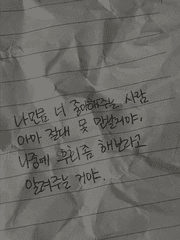 나만큼 너 좋아해주는 사람
아마 절대 못 만날거야,
나중에 후회좀 해보라고
알려주는 거야.